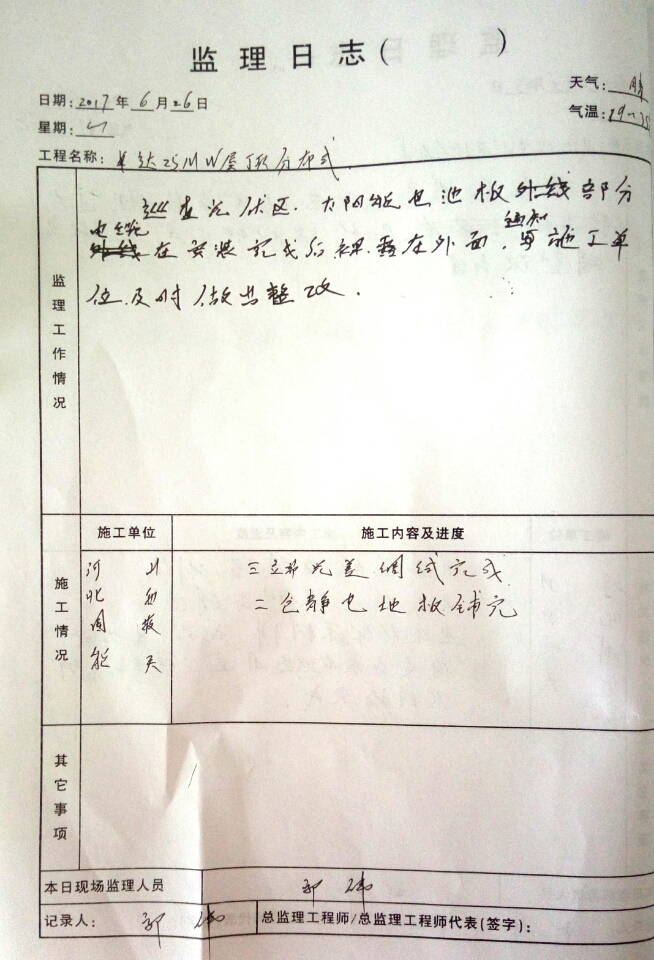 监理日志( )
天气: 晴
日期: 2017年6月26日
气温: 19~
星期: 一
工程名称: 25MW屋顶分布式
监理工作情况
巡查光伏区. 太阳能电池板外线部分
电缆 通知
外线在安装完成后裸露在外面, 施工单
位及时做出整改.
施工单位
施工内容及进度
施工情况
河北国能
三 光差 线完成
二仓静电地板铺完
其它事项
本日现场监理人员
郭
记录人: 郭
总监理工程师/总监理工程师代表(签字):